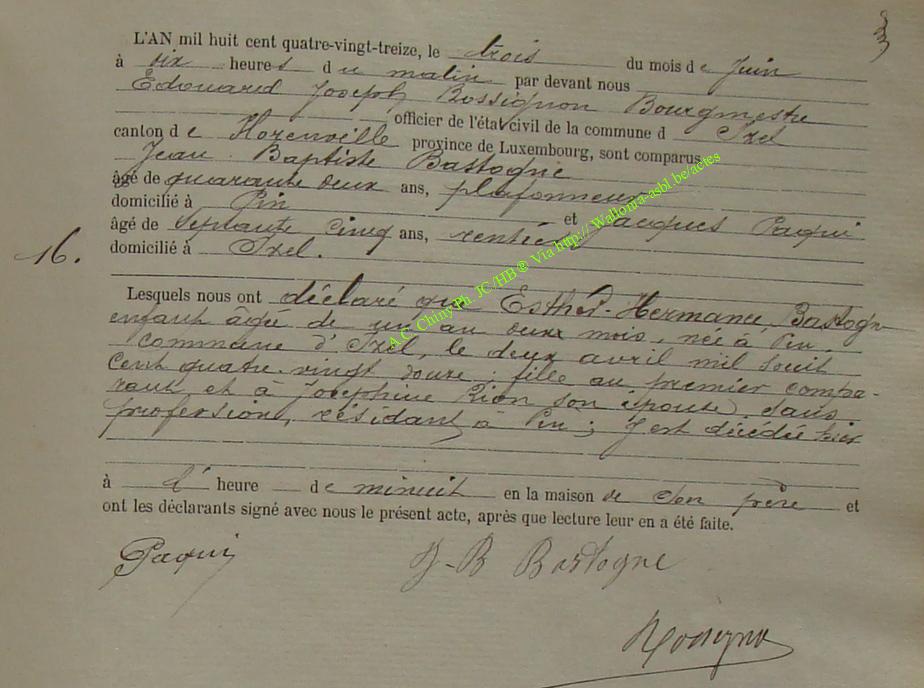 L'AN mil huit cent quatre-vingt-treize, le trois du mois de Juin
à six heures du matin par devant nous
Edouard Joseph Rossignon Bourgmestre
officier de l'état civil de la commune d Izel
canton de Florenville province de Luxembourg, sont comparus
Jean Baptiste Bastogne
âgé de quarante deux ans, plafonneur
domicilié à Pin et Jacques Paqui
âgé de septante cinq ans, rentier
16.
domicilié à Izel.
Lesquels nous ont déclaré que Esther-Hermance Bastogn
enfant âgée de un an deux mois, née à Pin
commune d'Izel, le deux avril mil huit
cent quatre-vingt douze; fille au premier compa-
rant et à Joséphine Rion son épouse, sans
profession, résidant à Pin; y est décédée hier
à l' heure de minuit en la maison de son père et
ont les déclarants signé avec nous le présent acte, après que lecture leur en a été faite.
Paqui
J-B Bastogne
Rossignon
A.C Chiny Ph JC/HB ® Via http://Wallonia-asbl.be/actes